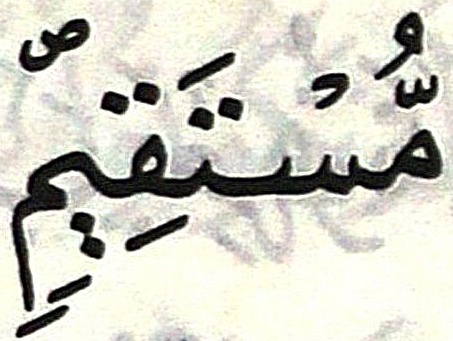 مُّسْتَقِيمٍۢ ۙ